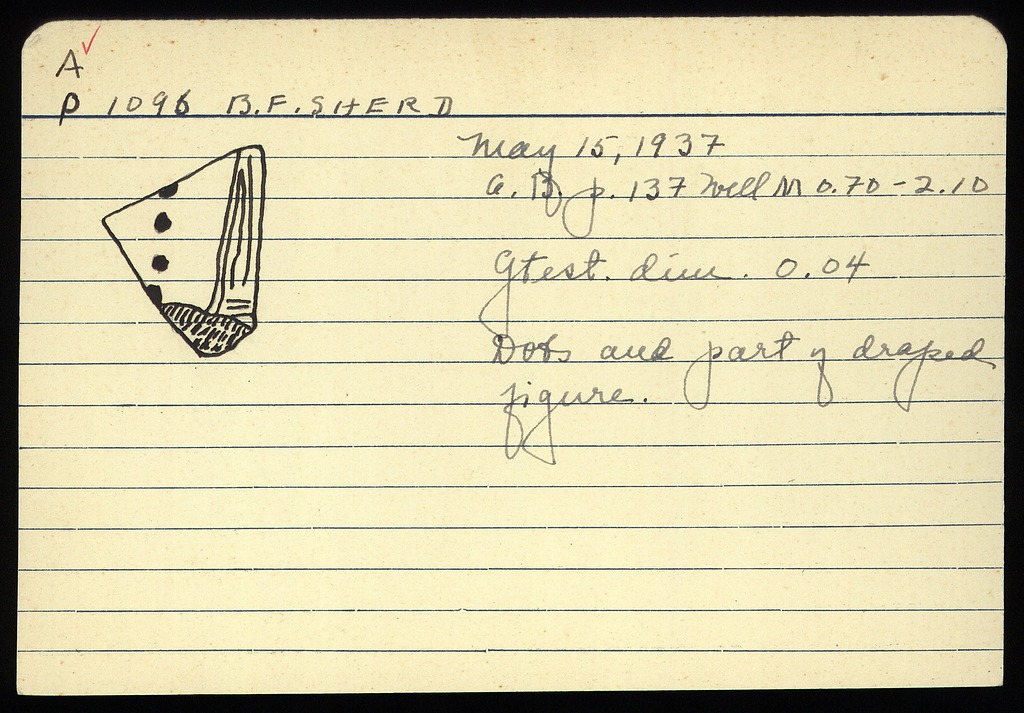 A
P 1096 B.F. SHERD
May 15, 1937
G. B. p. 137 Well M 0.70 - 2.10
Gtest. dim. 0.04
Dots and part of draped
figure.